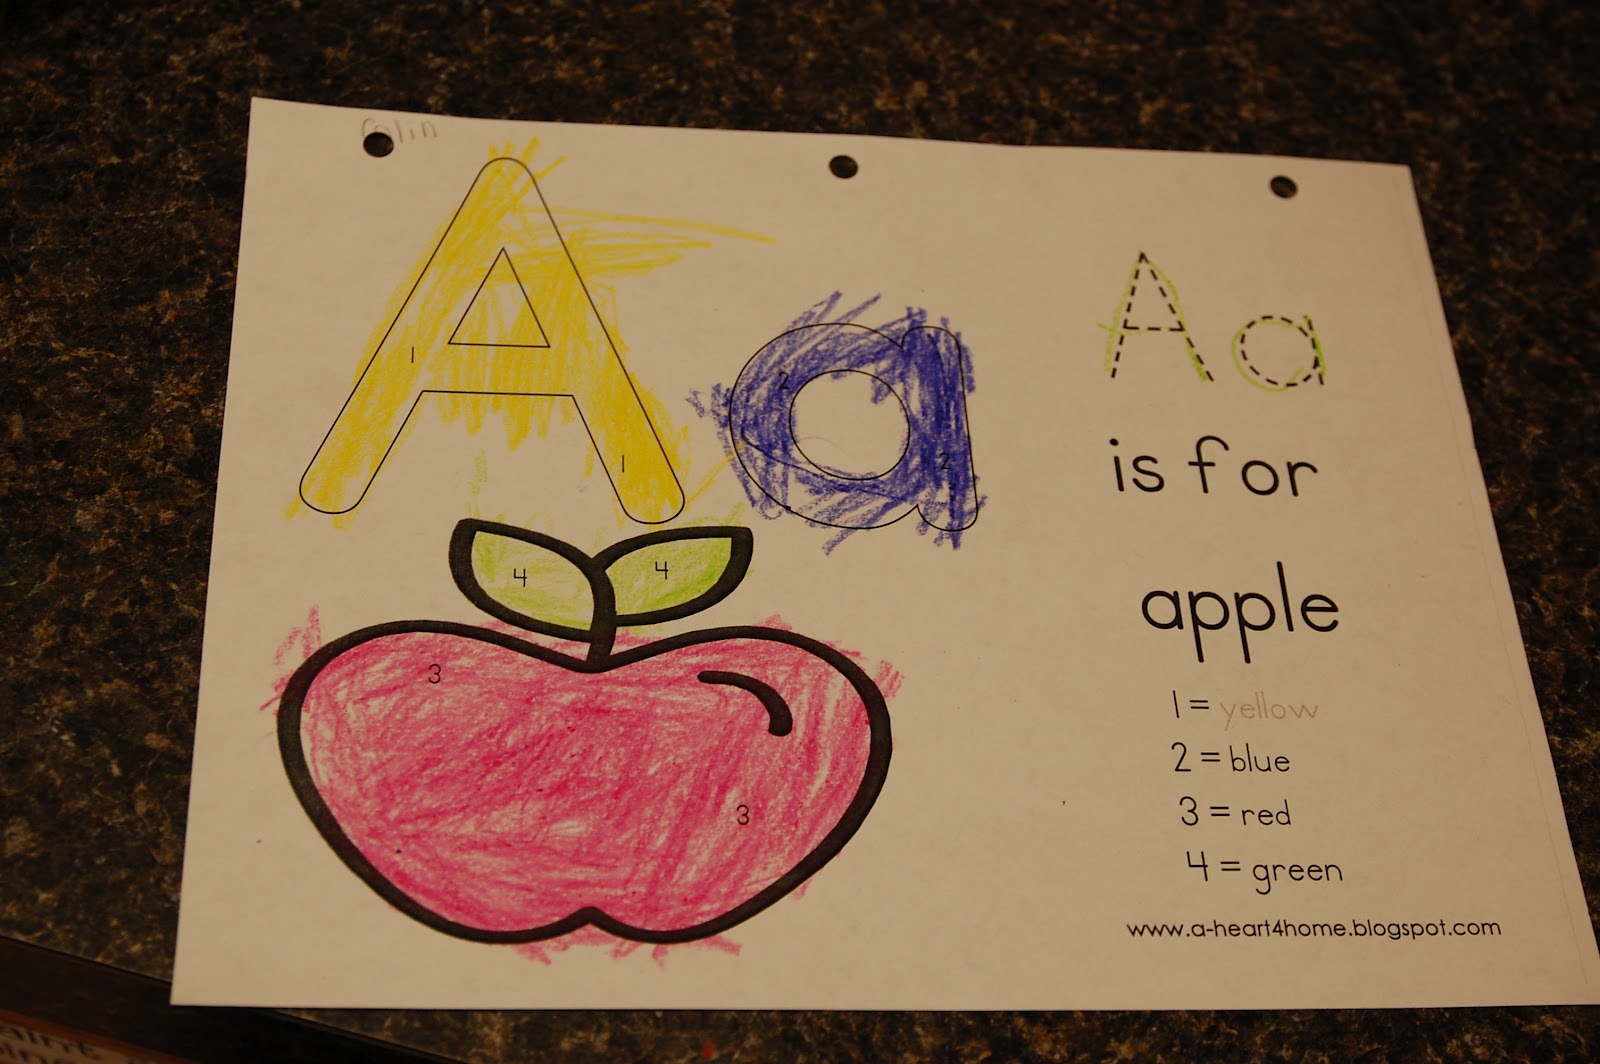 Colin
A a
1
1
2
2
4 4
3
3
Aa
is for
apple
1 = yellow
2 = blue
3 = red
4 = green
www.a-heart4home.blogspot.com